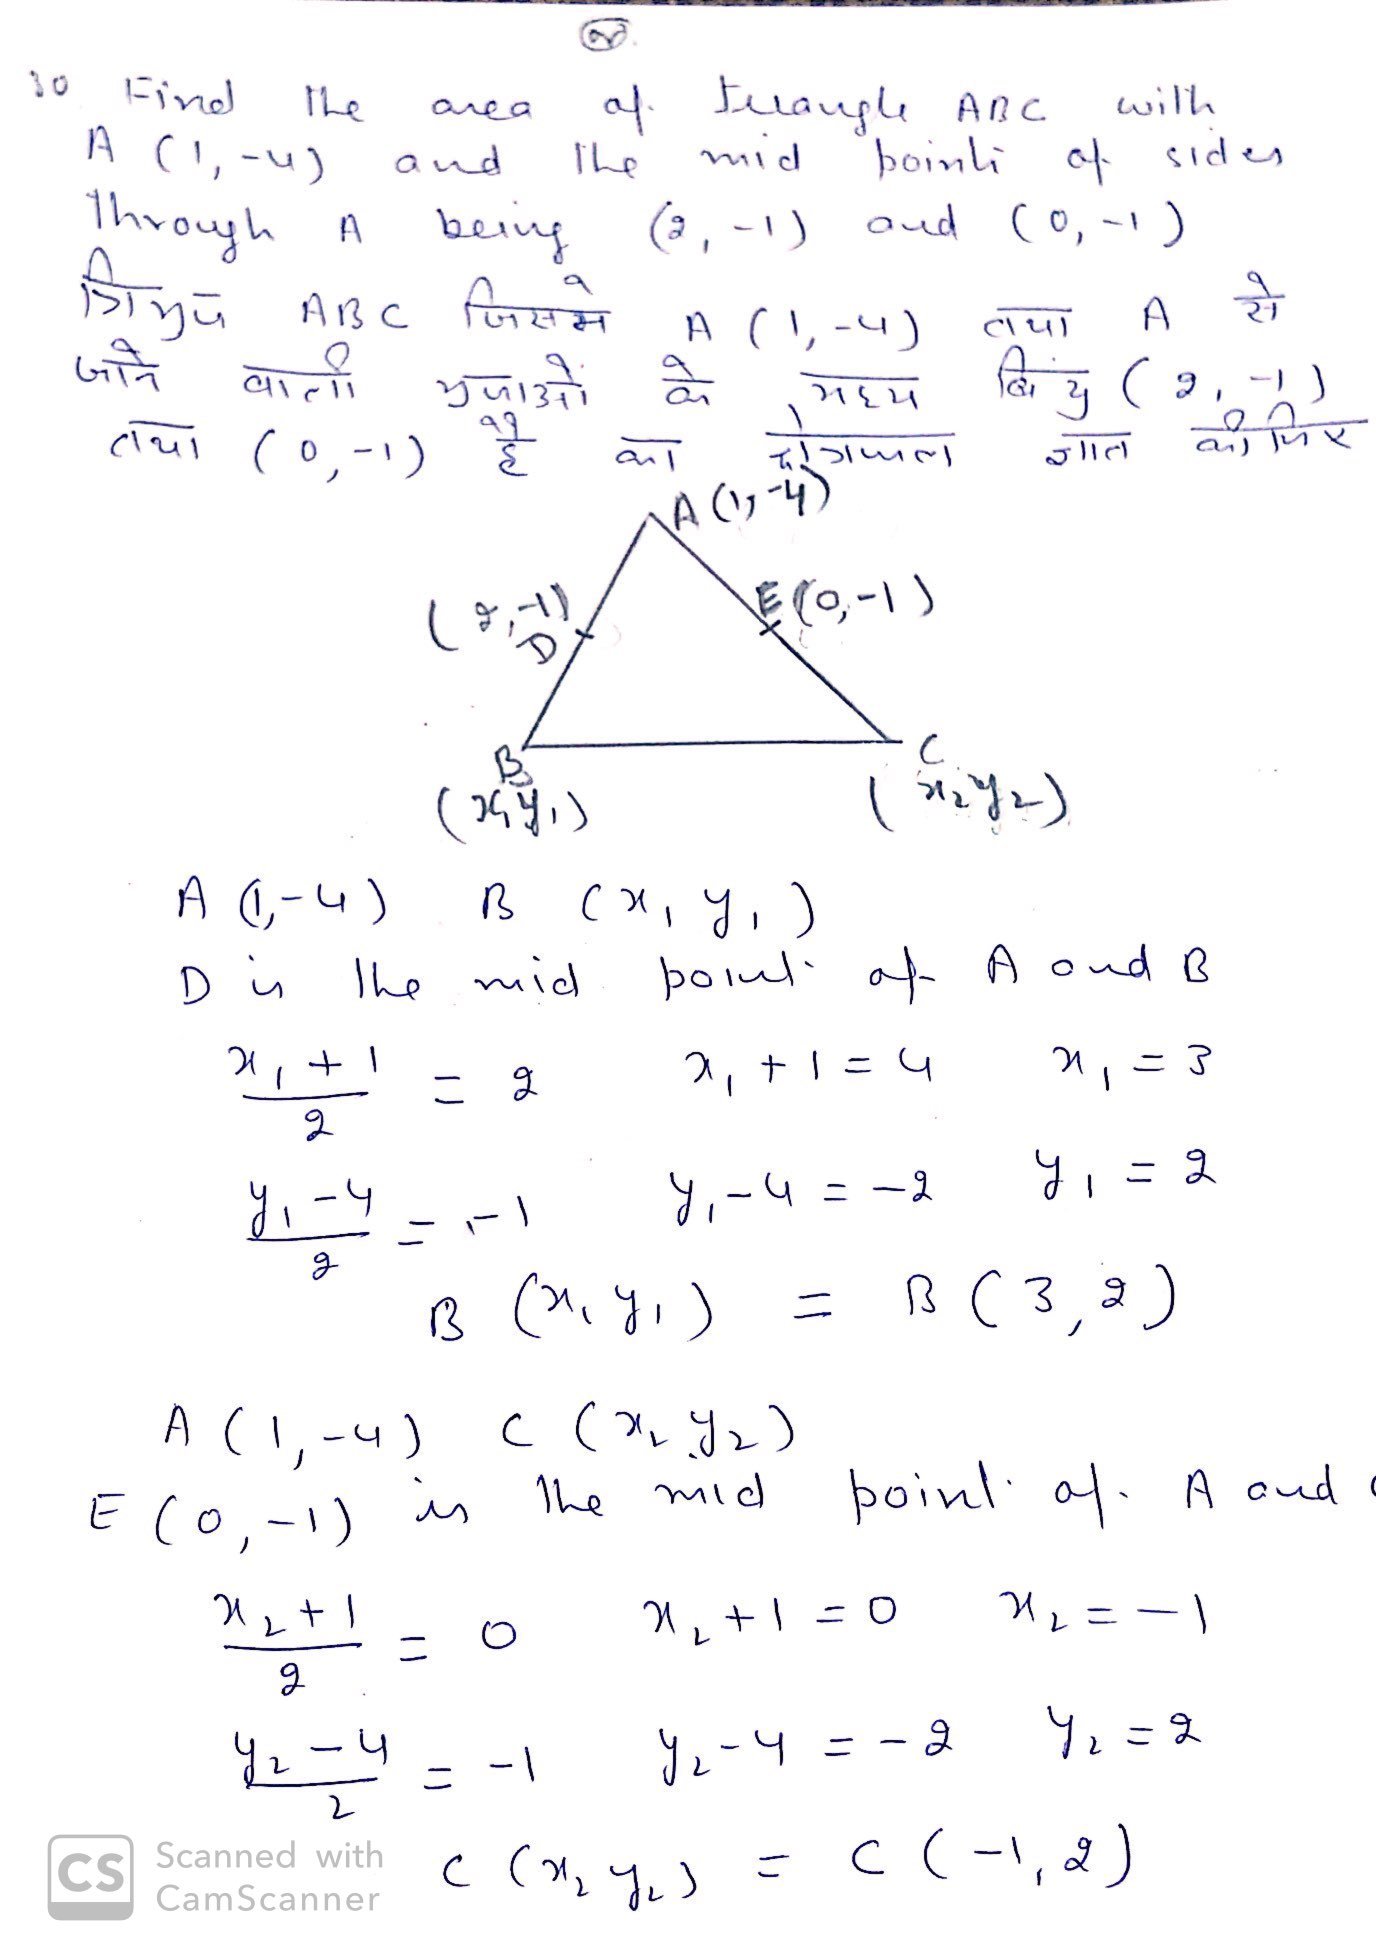 30 Find the area of triangle ABC with
A (1, -4) and the mid point of sides
through A being (2, -1) and (0, -1)
त्रिभुज ABC जिसमे A (1, -4) तथा A से
जाने वाली भुजाओ के मध्य बिंदु (2, -1)
तथा (0, -1) है का क्षेत्रफल ज्ञात कीजिए
A (1, -4)
(2, -1) E (0, -1)
D
B C
(x₁ y₁) (x₂ y₂)
A (1, -4) B (x₁ y₁)
D is the mid point of A and B
(x₁ + 1)/2 = 2 x₁ + 1 = 4 x₁ = 3
(y₁ - 4)/2 = -1 y₁ - 4 = -2 y₁ = 2
B (x₁ y₁) = B (3, 2)
A (1, -4) C (x₂ y₂)
E (0, -1) is the mid point of A and
(x₂ + 1)/2 = 0 x₂ + 1 = 0 x₂ = -1
(y₂ - 4)/2 = -1 y₂ - 4 = -2 y₂ = 2
C (x₂ y₂) = C (-1, 2)
CS Scanned with
CamScanner